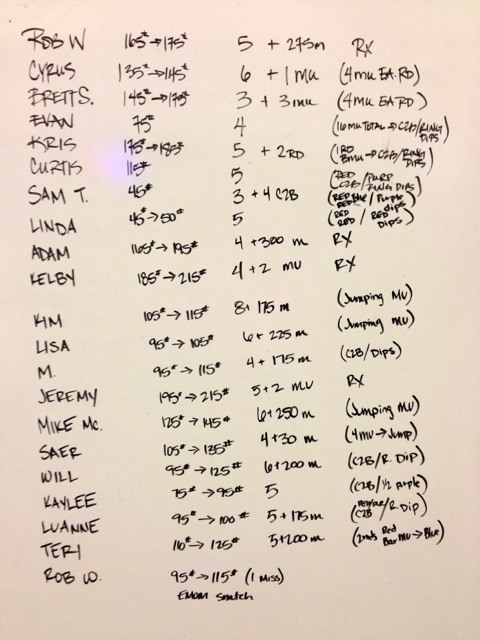 ROB W 165# → 175# 5 + 275m RX
CYRUS 135# → 145# 6 + 1 MU (4 MU EA. RD)
BRETT S. 145# → 175# 3 + 3 MU (4 MU EA RD)
EVAN 75# 4 (16 MU TOTAL → C2B/RING DIPS)
KRIS 175# → 185# 5 + 2RD (1RD BMU → C2B/RING DIPS)
CURTIS 115# 5 (RED C2B/PURP RING DIPS)
SAM T. 45# 3 + 4 C2B (RED Blue/Purple dips)
LINDA 45# → 50# 5 (RED RED / RED Dips)
ADAM 165# → 195# 4 + 300 m RX
KELBY 185# → 215# 4 + 2 MU RX
KIM 105# → 115# 8 + 175 m (Jumping MU)
LISA 95# → 105# 6 + 225 m (Jumping MU)
M. 95# → 115# 4 + 175 m (C2B/Dips)
JEREMY 195# → 215# 5 + 2 MU RX
MIKE Mc. 125# → 145# 6 + 250 m (Jumping MU)
SAER 105# → 135# 4 + 30 m (4 MU → Jump)
WILL 95# → 125# 6 + 200 m (C2B/R. Dip)
KAYLEE 75# → 95# 5 (C2B/½ purple)
LUANNE 95# → 100# 5 + 175 m (C2B/R. Dip)
TERI 110# → 125# 5 + 200 m (2 rds Red Bar MU → Blue)
ROB W. 95# → 115# (1 Miss)
EMOM Snatch